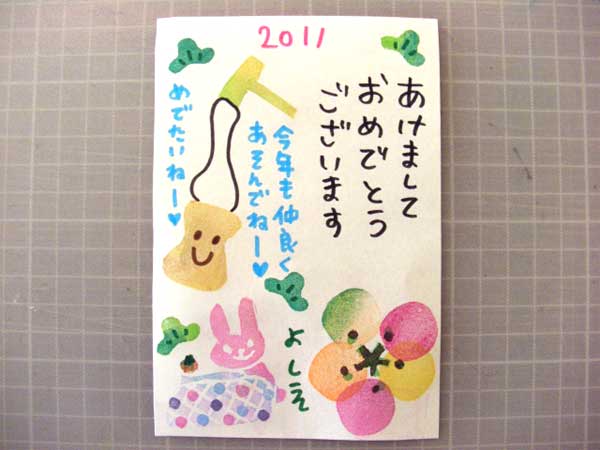 2011
あけまして
おめでとう
ございます
今年も仲良く
あそんでねー♥
めでたいねー♥
よしえ